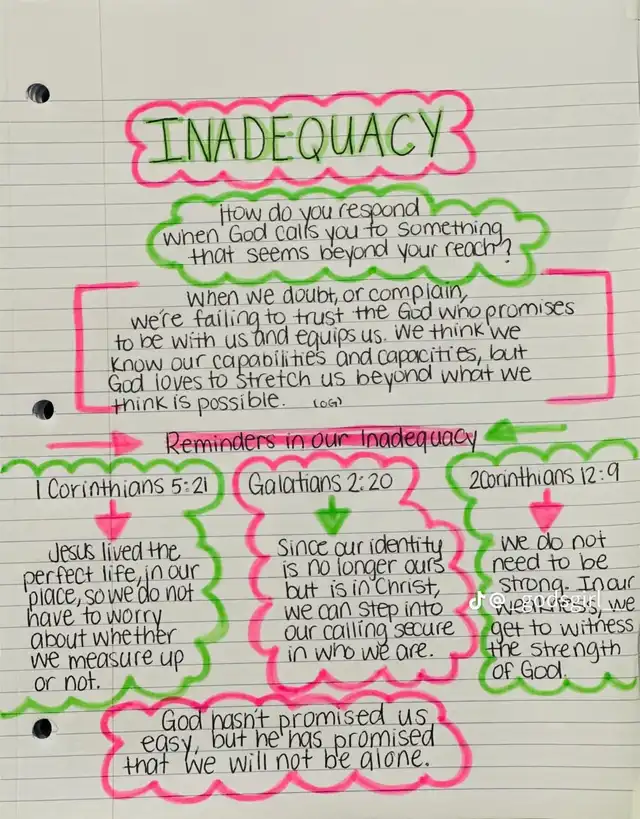 INADEQUACY
How do you respond
when God calls you to something
that seems beyond your reach?
When we doubt, or complain,
we're failing to trust the God who promises
to be with us and equips us. We think we
know our capabilities and capacities, but
God loves to stretch us beyond what we
think is possible. (OG)
Reminders in our Inadequacy
1 Corinthians 5:21
Jesus lived the
perfect life, in our
place, so we do not
have to worry
about whether
we measure up
or not.
Galatians 2:20
Since our identity
is no longer ours
but is in Christ,
we can step into
our calling secure
in who we are.
2 Corinthians 12:9
We do not
need to be
strong. In our
weakness, we
get to witness
the strength
of God.
God hasn't promised us
easy, but he has promised
that we will not be alone.